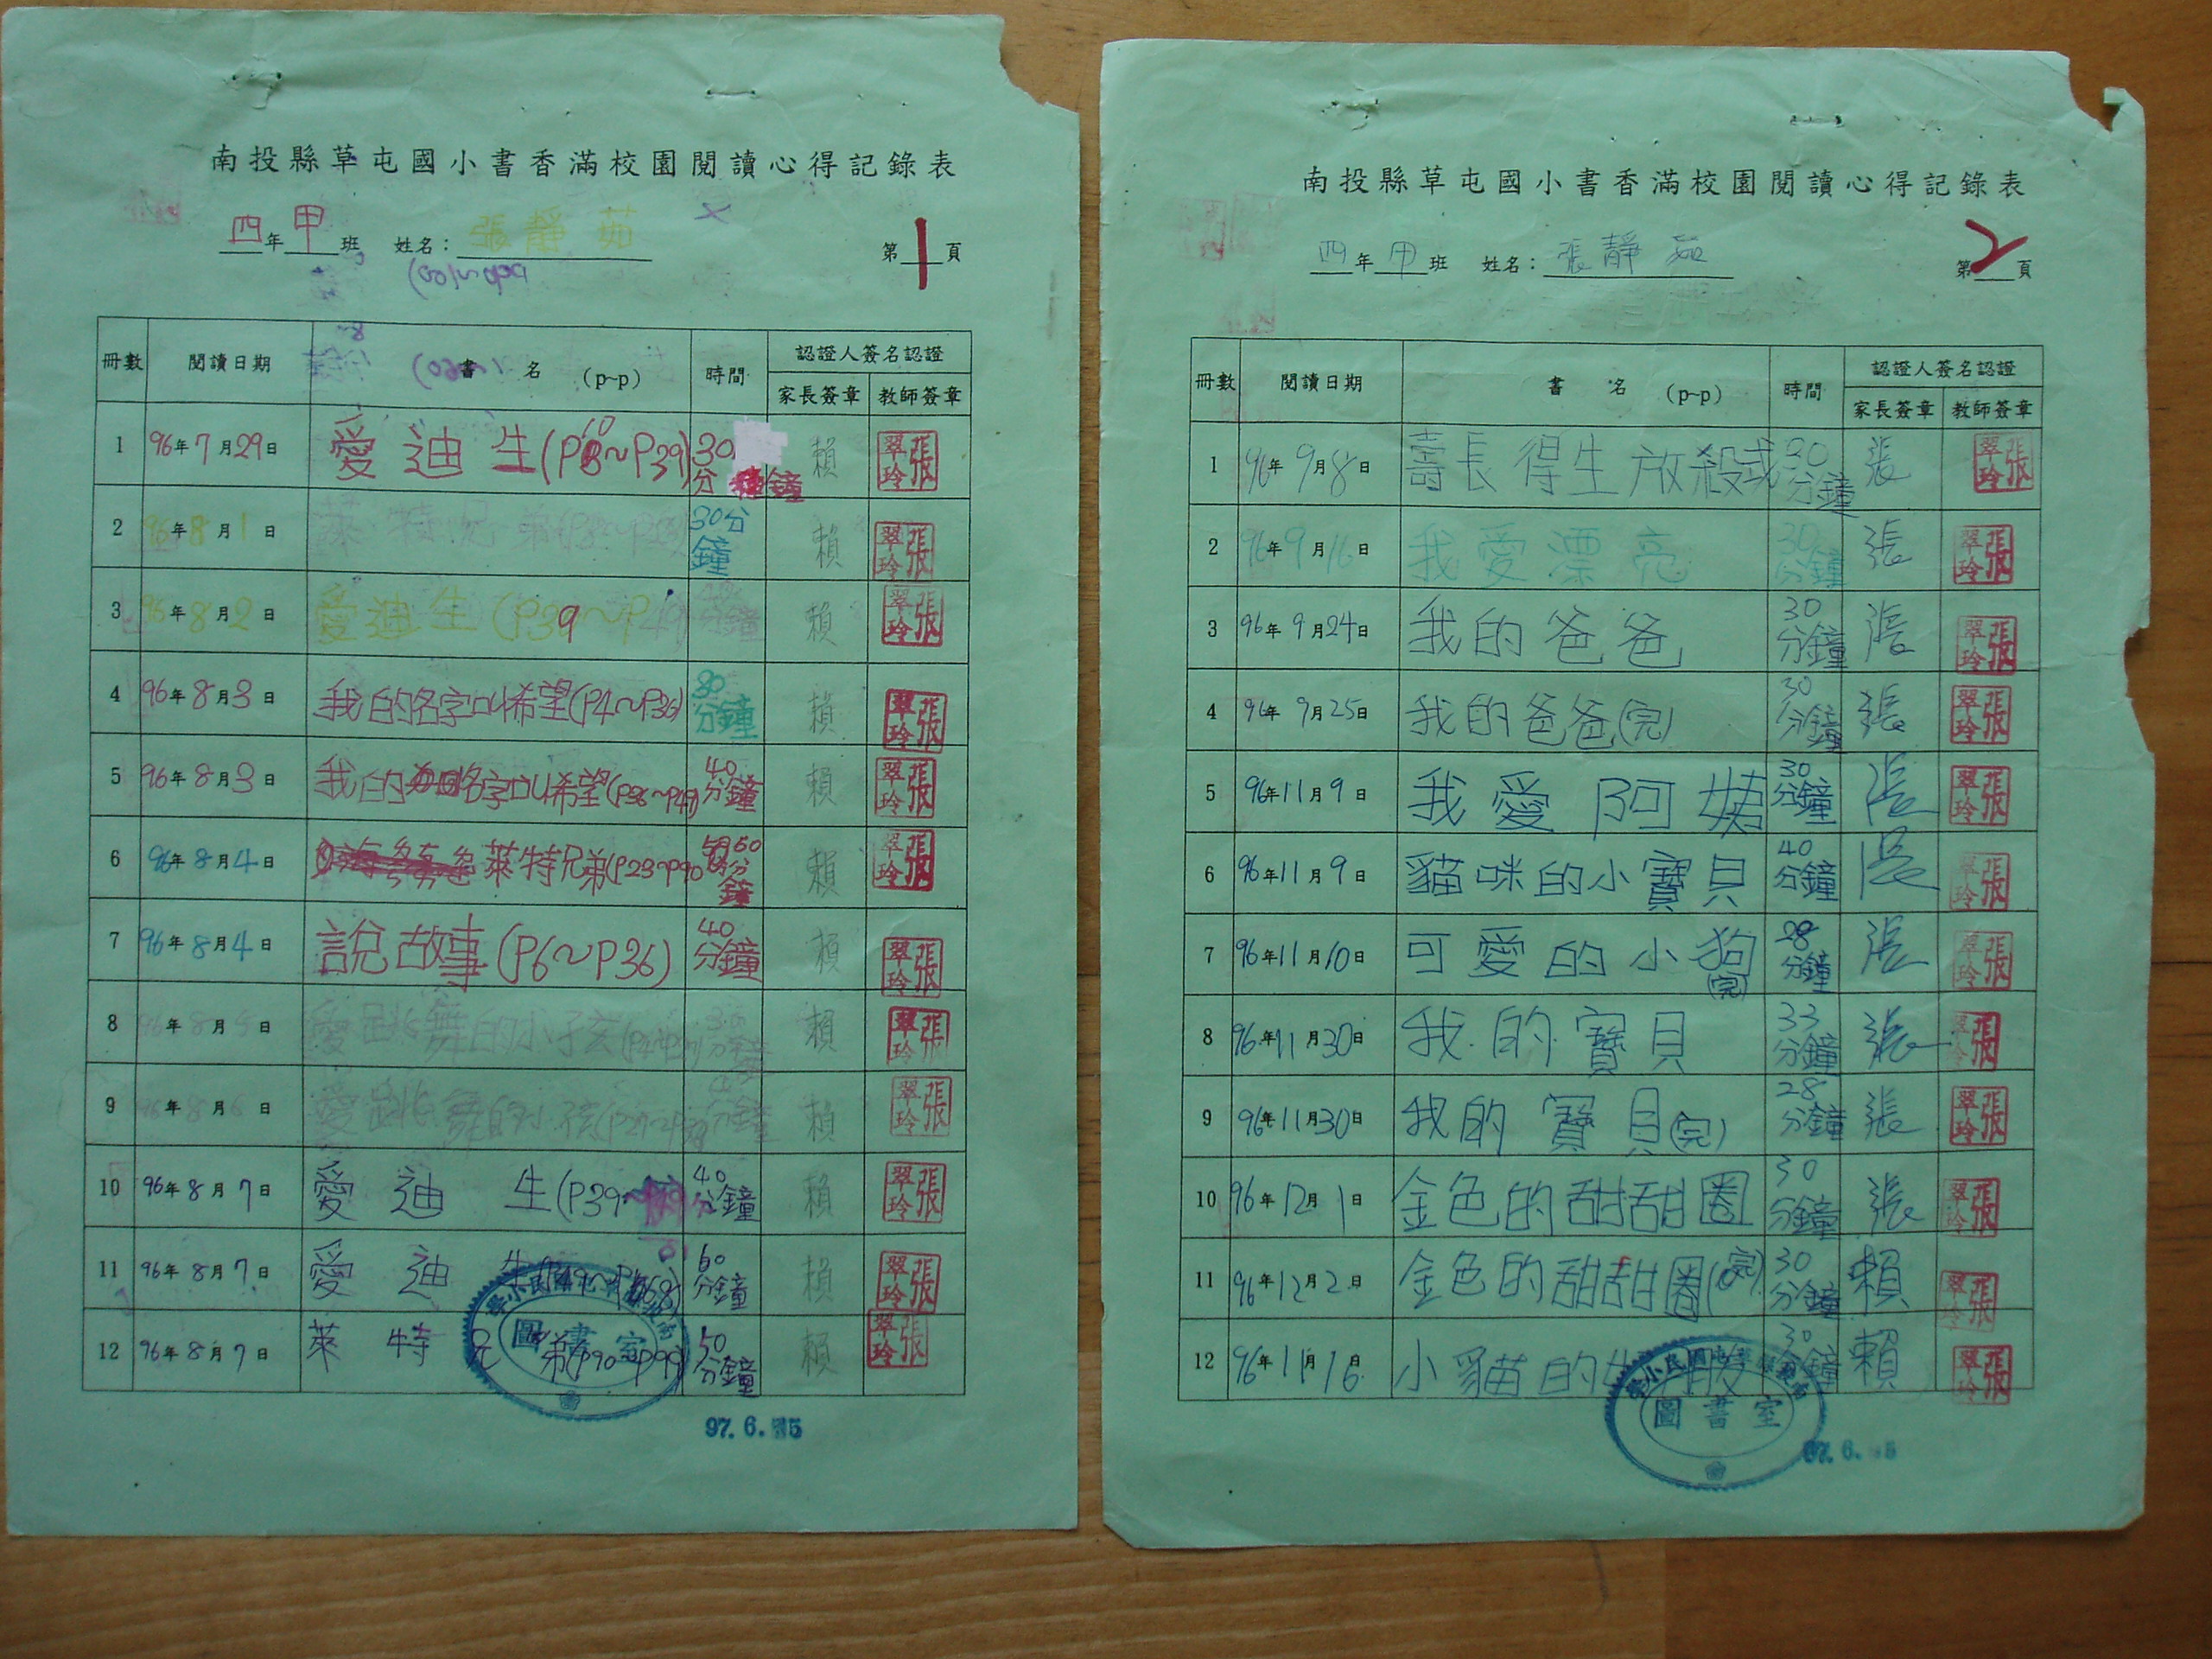 南投縣草屯國小書香滿校園閱讀心得記錄表
四年甲班 姓名：張靜茹 第1頁
冊數 閱讀日期 書名 (p~p) 時間 認證人簽名認證
家長簽章 教師簽章
1 96年7月29日 愛迪生(P10~P39) 30分鐘 賴 張翠玲
2 96年8月1日 萊特兄弟 30分鐘 賴 張翠玲
3 96年8月2日 愛迪生(P39~P49) 分鐘 賴 張翠玲
4 96年8月3日 我的名字叫希望(P4~P36) 30分鐘 賴 張翠玲
5 96年8月3日 我的名字叫希望(P36~P49) 40分鐘 賴 張翠玲
6 96年8月4日 萊特兄弟(P23~P90 分鐘 賴 張翠玲
7 96年8月4日 說故事(P6~P36) 40分鐘 賴 張翠玲
8 96年8月5日 愛跳舞的小孩 分鐘 賴 張翠玲
9 96年8月6日 愛跳舞的小孩 分鐘 賴 張翠玲
10 96年8月7日 愛迪生(P39~ 40分鐘 賴 張翠玲
11 96年8月7日 愛迪生 60分鐘 賴 張翠玲
12 96年8月7日 萊特兄弟(P90~P99) 50分鐘 賴 張翠玲
圖書室
97.6.
南投縣草屯國小書香滿校園閱讀心得記錄表
四年甲班 姓名：張靜茹 第2頁
冊數 閱讀日期 書名 (p~p) 時間 認證人簽名認證
家長簽章 教師簽章
1 96年9月8日 壽長得生放殺戒 30分鐘 張 張翠玲
2 96年9月16日 我愛漂亮 30分鐘 張 張翠玲
3 96年9月24日 我的爸爸 30分鐘 張 張翠玲
4 96年9月25日 我的爸爸(完) 30分鐘 張 張翠玲
5 96年11月9日 我愛阿姨 30分鐘 張 張翠玲
6 96年11月9日 貓咪的小寶貝 40分鐘 張 張翠玲
7 96年11月10日 可愛的小狗(完) 28分鐘 張 張翠玲
8 96年11月30日 我的寶貝 33分鐘 張 張翠玲
9 96年11月30日 我的寶貝(完) 28分鐘 張 張翠玲
10 96年12月1日 金色的甜甜圈 30分鐘 張 張翠玲
11 96年12月2日 金色的甜甜圈(完) 30分鐘 賴 張翠玲
12 96年11月16日 小貓的 30分鐘 賴 張翠玲
圖書室
97.6.